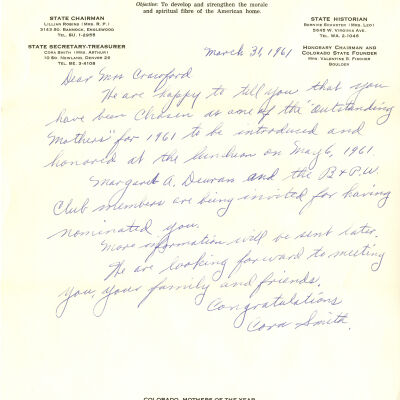 Objective: To develop and strengthen the morale
and spiritual fibre of the American home.
STATE CHAIRMAN
Lillian Robins (Mrs. R. P.)
3143 So. Bannock, Englewood
Tel. SU. 1-2955
STATE SECRETARY-TREASURER
Cora Smith (Mrs. Arthur)
10 So. Newland, Denver 26
Tel. BE. 3-8108
STATE HISTORIAN
Bernice Shuster (Mrs. Leo)
5645 W. Virginia Ave.
Tel. WA. 2-1046
Honorary Chairman and
Colorado State Founder
Mrs. Valentine B. Fischer
Boulder
March 31, 1961
Dear Mrs Crawford
We are happy to tell you that you
have been chosen as one of the "Outstanding
Mothers" for 1961 to be introduced and
honored at the luncheon on May 6, 1961.
Margaret A. and the B & P.W.
Club members are being invited for having
nominated you.
More information will be sent later.
We are looking forward to meeting
you, your family and friends.
Congratulations
Cora Smith.
COLORADO MOTHERS OF THE YEAR